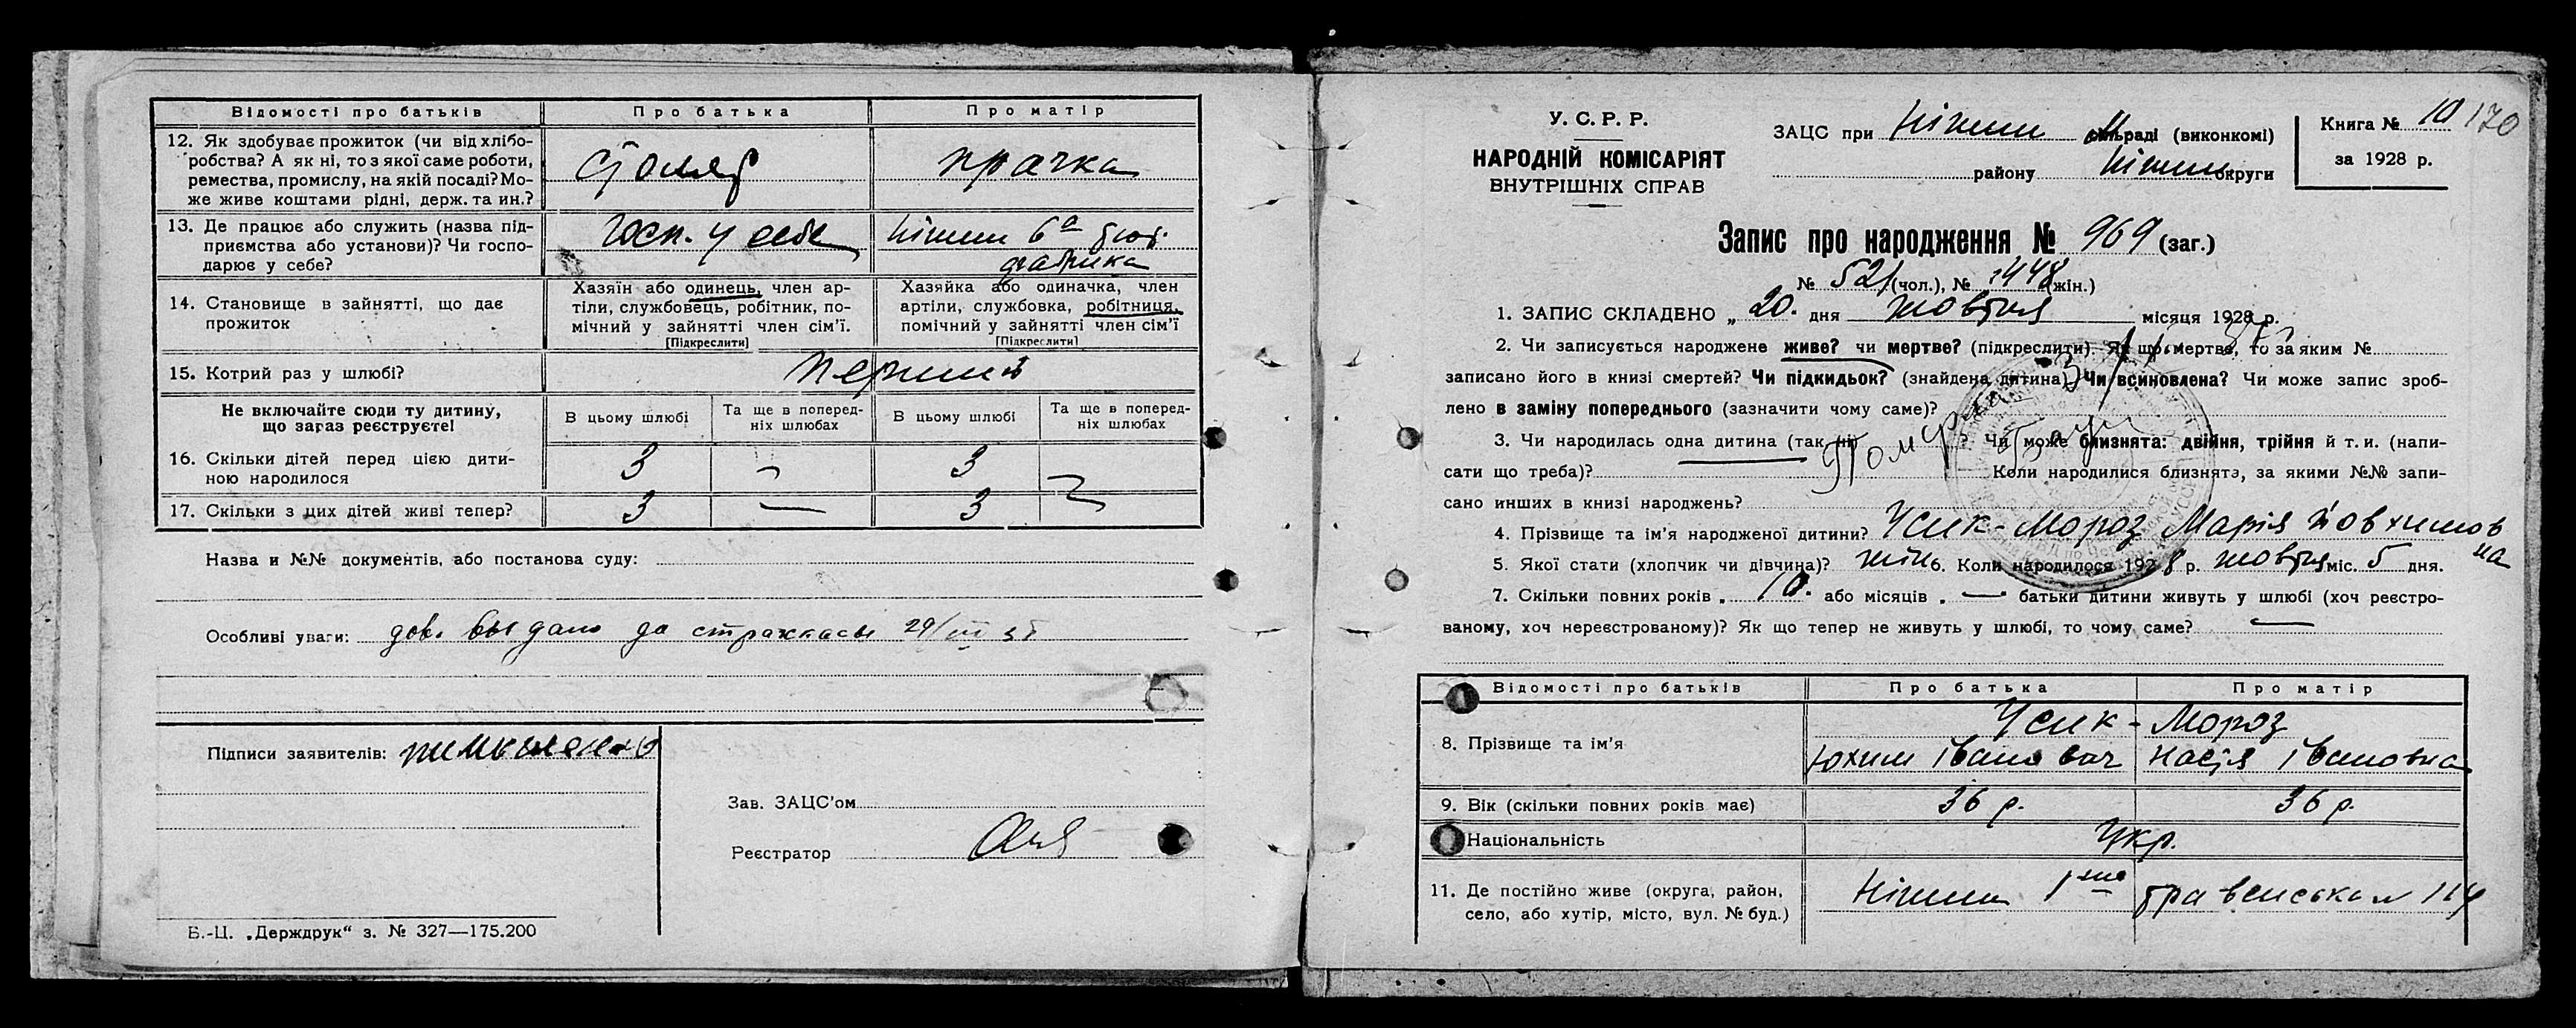 Відомості про батьків Про батька Про матір
12. Як здобуває прожиток (чи від хлібо-
робства? А як ні, то з якої саме роботи,
ремества, промислу, на якій посаді? Мо-
же живе коштами рідні, держ. та ин.?
столяр прачка
13. Де працює або служить (назва під-
приємства або установи)? Чи госпо-
дарює у себе?
госп. у себе Ніжин 6а тют.
фабрика
14. Становище в зайнятті, що дає
прожиток
Хазяїн або одинець, член ар-
тіли, службовець, робітник, по-
мічний у зайнятті член сім'ї.
[Підкреслити]
Хазяйка або одиначка, член
артіли, службовка, робітниця,
помічний у зайнятті член сім'ї
[Підкреслити]
15. Котрий раз у шлюбі? перший
Не включайте сюди ту дитину,
що зараз реєструєте!
В цьому шлюбі Та ще в поперед-
ніх шлюбах В цьому шлюбі Та ще в поперед-
ніх шлюбах
16. Скільки дітей перед цією дити-
ною народилося 3 — 3
17. Скільки з цих дітей живі тепер? 3 — 3 —
Назва и №№ документів, або постанова суду:
Особливі уваги: дов. выдано до страхкасы 29/III 3
Підписи заявителів:
Зав. ЗАЦС'ом
Реєстратор
Б.-Ц. „Держдрук" з. № 327—175.200
У. С. Р. Р.
НАРОДНІЙ КОМІСАРІЯТ
ВНУТРІШНІХ СПРАВ
ЗАЦС при Ніжин М раді (виконкомі)
району Ніжин округи
Книга № 10 170
за 1928 р.
Запис про народження № 969 (заг.)
№ 521 (чол.), № 448 (жін.)
1. ЗАПИС СКЛАДЕНО „ 20. дня жовтня місяця 1928 р.
2. Чи записується народжене живе? чи мертве? (підкреслити). Як що мертве, то за яким №
записано його в книзі смертей? Чи підкидьок? (знайдена дитина) Чи всиновлена? Чи може запис зроб-
лено в заміну попереднього (зазначити чому саме)?
3. Чи народилась одна дитина (так, ні) ? Чи може близнята: двійня, трійня й т. и. (напи-
сати що треба)? Коли народилися близнята, за якими №№ запи-
сано инших в книзі народжень?
Померла
4. Прізвище та ім'я народженої дитини? Усик-Мороз Марія Йовхимов
на
5. Якої стати (хлопчик чи дівчина)? жін 6. Коли народилося 1928 р. жовтня міс. 5 дня.
7. Скільки повних років „ 10. або місяців „ — батьки дитини живуть у шлюбі (хоч реєстро-
ваному, хоч нереєстрованому)? Як що тепер не живуть у шлюбі, то чому саме? —
Відомості про батьків Про батька Про матір
8. Прізвище та ім'я
Усик - Мороз
Юхим Іванович Настя Івановна
9. Вік (скільки повних років має) 36 р. 36 р.
Національність Укр.
11. Де постійно живе (округа, район,
село, або хутір, місто, вул. № буд.)
Ніжин